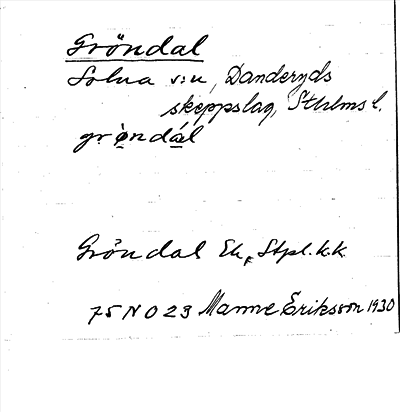 Gröndal
Solna s:n, Danderyds
skeppslag, Sthlms l.
grö̀ndál
Gröndal Ek, Stpl. k.k.
75 N O 23 Manne Eriksson 1930